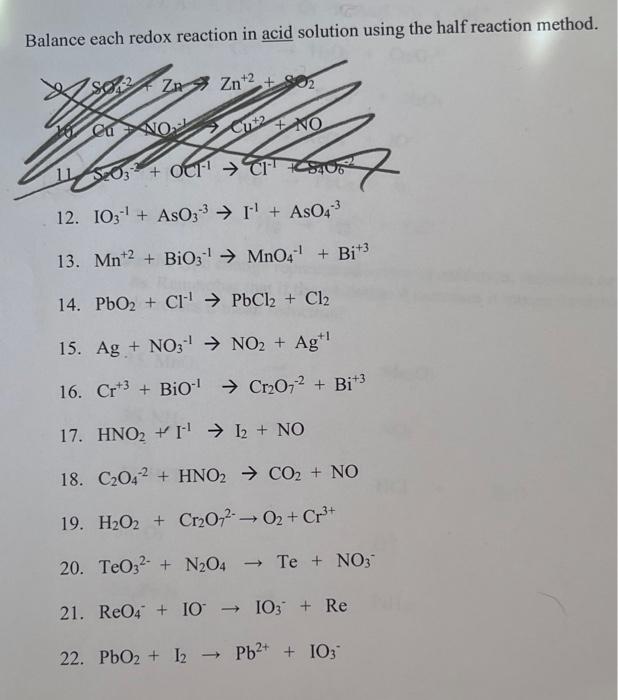 Balance each redox reaction in acid solution using the half reaction method.
SO₄⁻² + Zn → Zn⁺² + SO₂
10. Cu + NO₃⁻¹ → Cu⁺² + NO
11. S₂O₃⁻² + OCl⁻¹ → Cl⁻¹ + S₄O₆⁻²
12. IO₃⁻¹ + AsO₃⁻³ → I⁻¹ + AsO₄⁻³
13. Mn⁺² + BiO₃⁻¹ → MnO₄⁻¹ + Bi⁺³
14. PbO₂ + Cl⁻¹ → PbCl₂ + Cl₂
15. Ag + NO₃⁻¹ → NO₂ + Ag⁺¹
16. Cr⁺³ + BiO⁻¹ → Cr₂O₇⁻² + Bi⁺³
17. HNO₂ + I⁻¹ → I₂ + NO
18. C₂O₄⁻² + HNO₂ → CO₂ + NO
19. H₂O₂ + Cr₂O₇²⁻ → O₂ + Cr³⁺
20. TeO₃²⁻ + N₂O₄ → Te + NO₃⁻
21. ReO₄⁻ + IO⁻ → IO₃⁻ + Re
22. PbO₂ + I₂ → Pb²⁺ + IO₃⁻